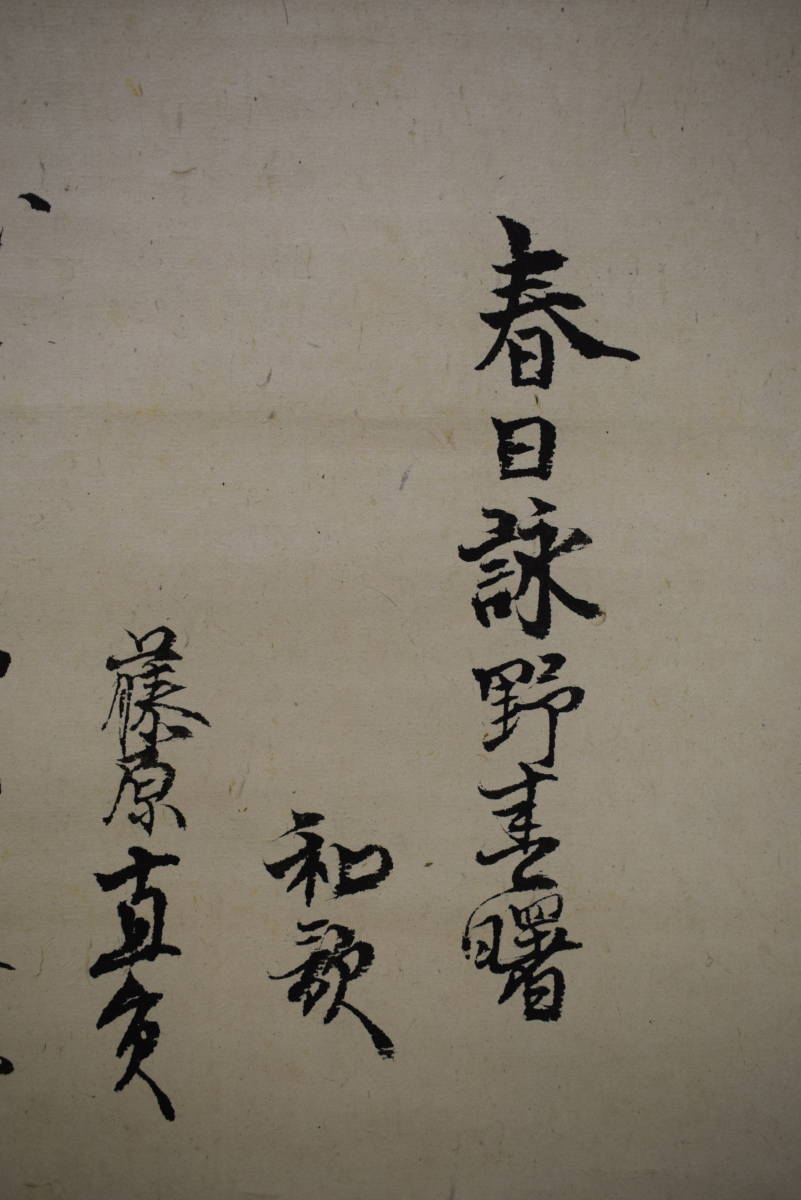 春日詠野春曙
和歌
藤原直